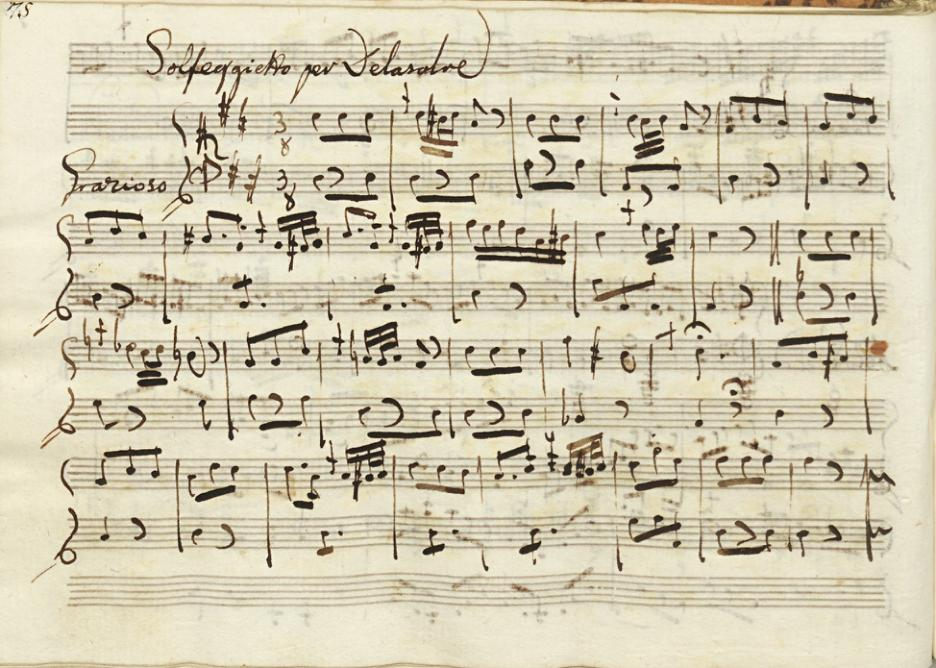 Solfeggietto per Delasolre
Grazioso